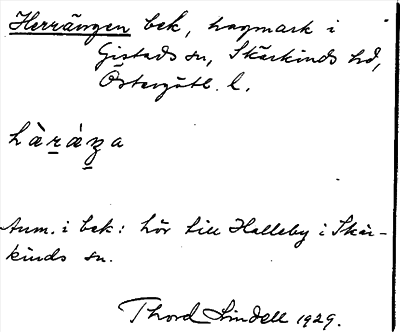 Herrängen bek, hagmark i
Gistads sn, Skärkinds hd,
Östergötl. l.
hàráŋa
Anm. i bek: hör till Halleby i Skär-
kinds sn.
Thord Lindell 1929.